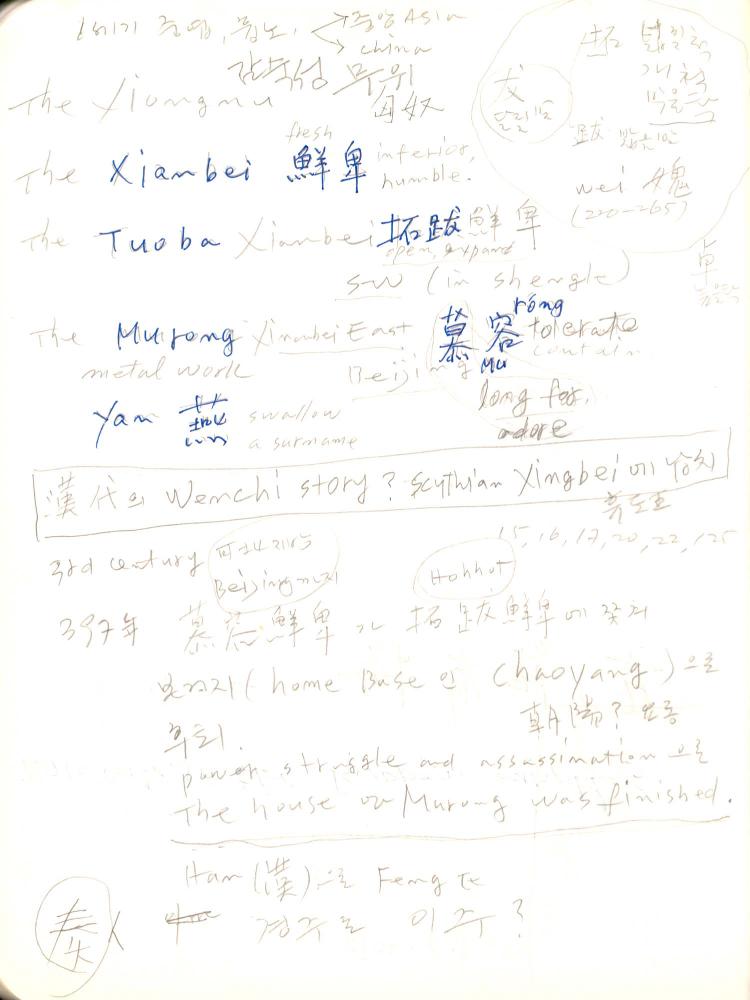 1세기 중엽, 흉노, → 중앙 Asia
→ china
감숙성 무위
The Xiongnu 匈奴
fresh
The Xianbei 鮮卑 inferior, humble.
The Tuoba Xianbei 拓跋鮮卑
open, expand
S-W (in shengle)
róng
The Murong Xianbei East 慕容 tolerate
contain
Mu
metal work Beijing
long for,
adore
Yan 燕 swallow
a surname
拓
개척
犮
달릴
跋
wei 魏
(220-265)
卓
漢代의 Wenchi story? Scythian Xingbei에
15, 16, 17, 20, 22, 125
3rd century
Beijing까지
Hohhot
397年 慕容鮮卑가 拓跋鮮卑에
(home Base인 Chaoyang)으로
朝陽? 요동
후퇴.
power struggle and assassination으로
The house of Murong was finished.
Han(漢)으로 Feng
秦人 경주로 이주?